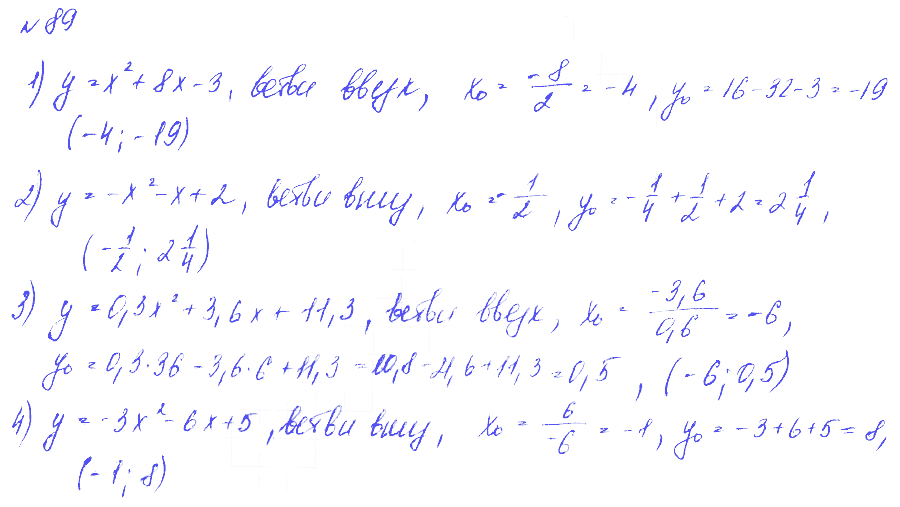 № 89
1) y = x² + 8x - 3, ветви вверх, x₀ = -8/2 = -4, y₀ = 16 - 32 - 3 = -19
(-4; -19)
2) y = -x² - x + 2, ветви вниз, x₀ = -1/2, y₀ = -1/4 + 1/2 + 2 = 2 1/4,
(-1/2; 2 1/4)
3) y = 0,3x² + 3,6x + 11,3, ветви вверх, x₀ = -3,6/0,6 = -6,
y₀ = 0,3·36 - 3,6·6 + 11,3 = 10,8 - 21,6 + 11,3 = 0,5, (-6; 0,5)
4) y = -3x² - 6x + 5, ветви вниз, x₀ = 6/-6 = -1, y₀ = -3 + 6 + 5 = 8,
(-1; 8)